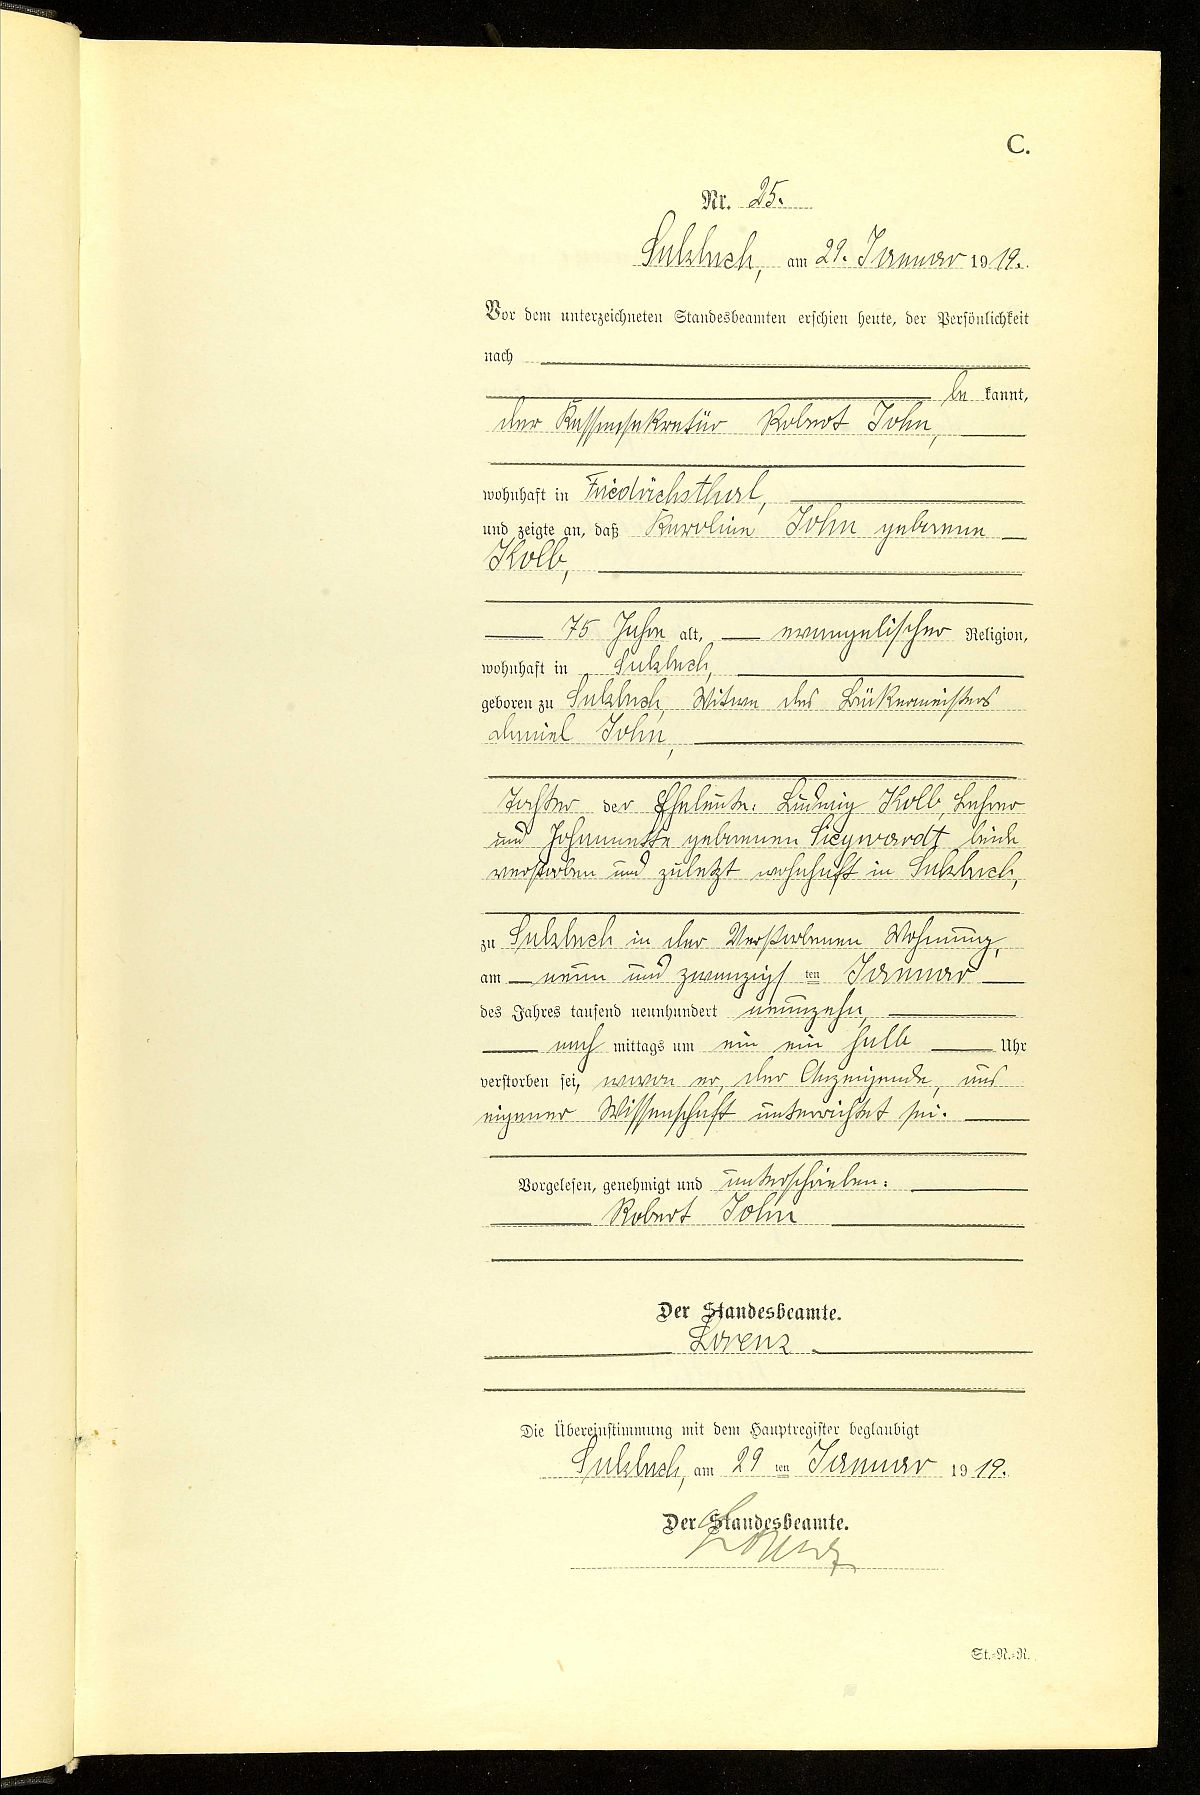 C.
Nr. 25.
Sulzbach, am 29. Januar 1919.
Vor dem unterzeichneten Standesbeamten erschien heute, der Persönlichkeit
nach
be kannt,
der Kassensekretär Robert John,
wohnhaft in Friedrichsthal,
und zeigte an, daß Karoline John geborene
Kolb,
75 Jahre alt, evangelischer Religion,
wohnhaft in Sulzbach,
geboren zu Sulzbach, Witwe des Bäckermeisters
Daniel John,
Tochter der Eheleute: Ludwig Kolb, Lehrer
und Johannette geborenen Siegwardt beide
verstorben und zuletzt wohnhaft in Sulzbach,
zu Sulzbach in der Verstorbenen Wohnung,
am neun und zwanzigsten Januar
des Jahres tausend neunhundert neunzehn,
nach mittags um ein ein halb Uhr
verstorben sei, wovon er, der Anzeigende, aus
eigener Wissenschaft unterrichtet sei.
Vorgelesen, genehmigt und unterschrieben:
Robert John
Der Standesbeamte.
Lorenz.
Die Übereinstimmung mit dem Hauptregister beglaubigt
Sulzbach, am 29 ten Januar 1919.
Der Standesbeamte.
Lorenz
St.=R.=R.